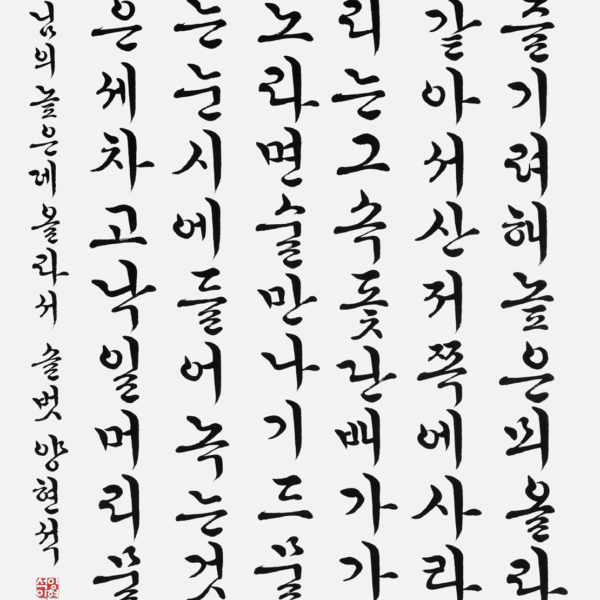 즐기려해높은뫼올라
같아서산저쪽에사라
리는그속돛단배가가
노라면술만나기드물
는눈시에들어녹는것
은세차고낙일머리물
님의높은데올라서 솔벗 양현석